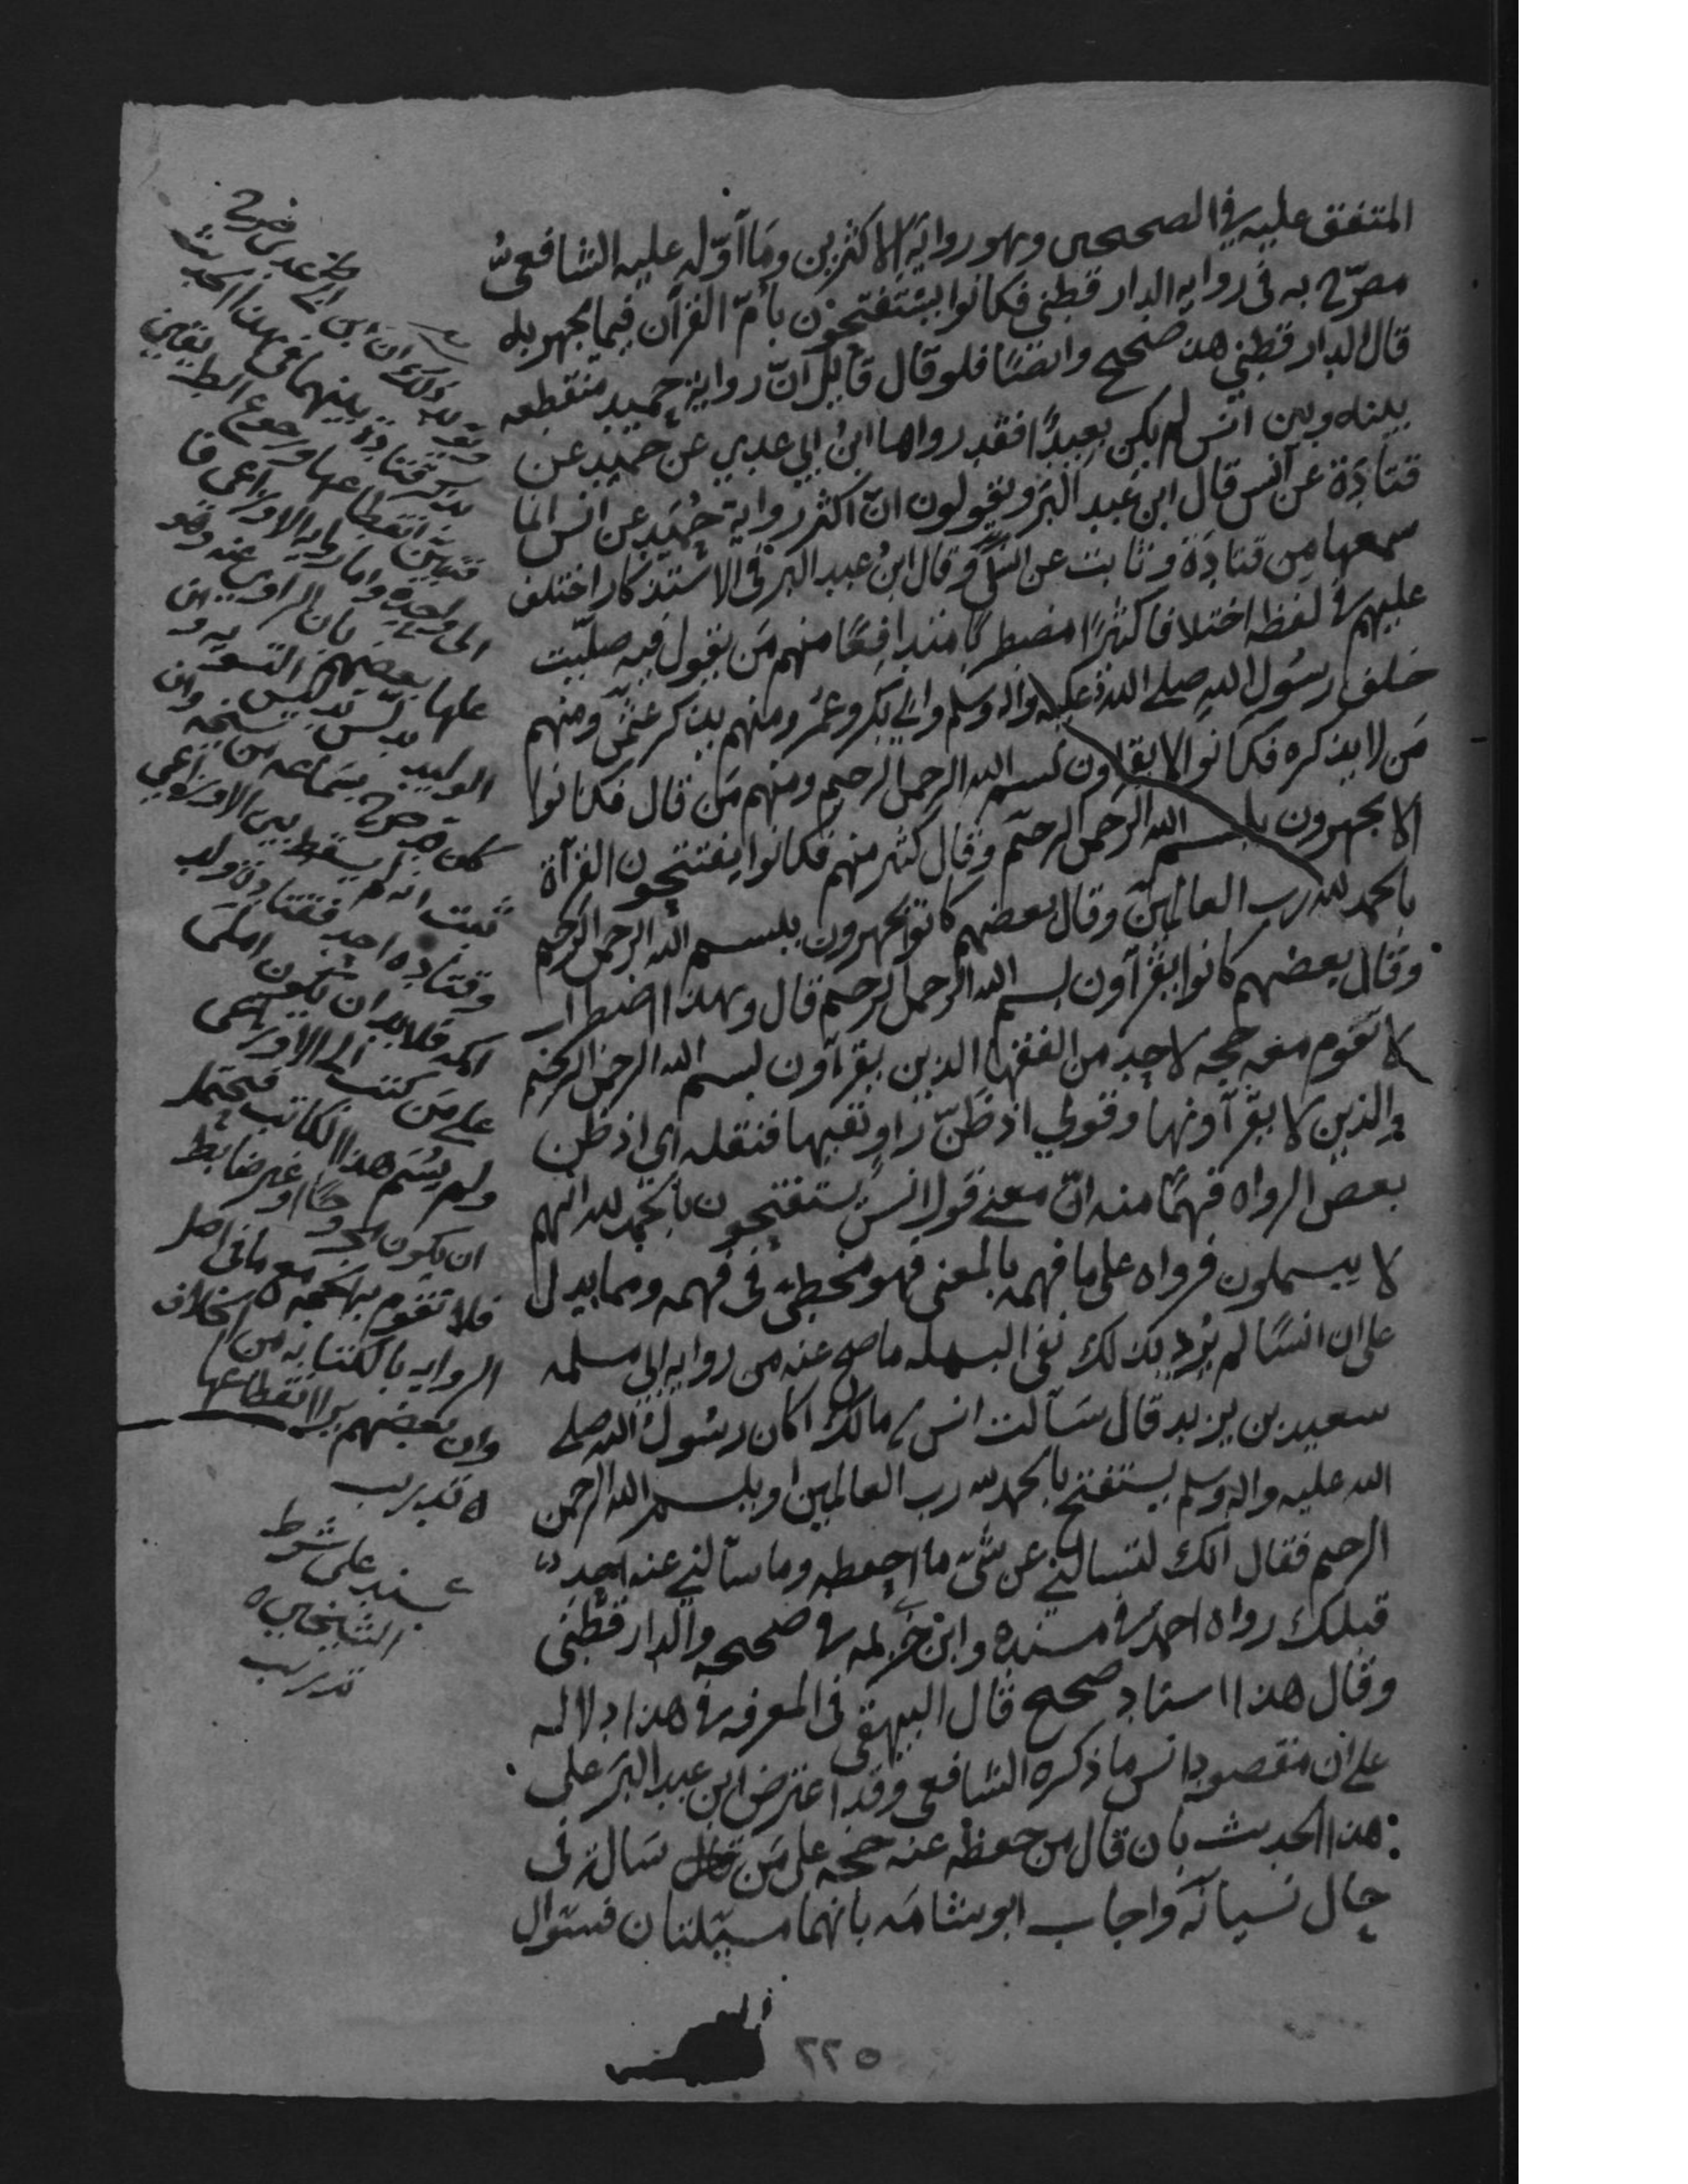 المتفق عليه في الصحيحين وهو رواية الاكثرين وما اوّله عليه الشافعي
مصرّح به في رواية الدارقطني فكانوا يستفتحون بأمّ القرآن فيما يجهر به
قال الدارقطني هذا صحيح وايضًا فلو قال قايل انّ رواية حميد منقطعه
بينه وبين انس لم يكن بعيدًا فقد رواها ابنُ ابي عدي عن حميد عن
قتادَة عن أنس قال ابن عبد البر ويقولون انّ اكثر رواية حُمَيد عن انس انما
سمعها مِن قتادَة وثابت عن انس وقال ابنُ عبد البر في الاستذكار اختلف
عليهم في لفظه اختلافا كثيرًا مضطربًا متدافعًا منهم مَن يقول فيه صلّيت
خلف رسُول الله صلى الله عليه واله وسلم وابي بكر وعمَر ومنهم من يذكر عثمٰن ومنهم
مَن لا يذكره فكانوا لا يقرأون بسم الله الرحمن الرحيم ومنهم مَن قال فكانوا
لا يجهرون ببسم الله الرحمن الرحيم وقال كثير منهم فكانوا يفتتحون القرآة
بالحمد لله رب العالمين وقال بعضهم كانوا يجهرون ببسم الله الرحمن الرحيم
وقال بعضهم كانوا يقرآون بسم الله الرحمن الرحيم قال وهذا اضطراب
لا تقوم معه حجه لاحد من الفقها الذين يقرآون بسم الله الرحمن الرحيم
والذين لا يقرآونها وقولي اذ ظَنّ راوٍ نفيها فنقله اي اذ ظن
بعض الرواه فهمًا منه انّ معنى قول انس يستفتحون بالحمد لله انهم
لا يبسملون فرواه على ما فهمه بالمعنى فهو مخطئ في فهمه ومما يدل
على ان انسًا لم يُرد بذلك نفي البسمله ما صح عنه من رواية ابي مسلمه
سعيد بن يزيد قال سَآلت انس بن مالك اكان رسُول الله صلى
الله عليه واله وسلم يستفتح بالحمد لله رب العالمين او ببسم الله الرحمن
الرحيم فقال انك لتسالني عن شئ ما احفظه وما سآلني عنه احد
قبلك رواه احمد في مسنده وابن خزيمه في صحيحه والدارقطني
وقال هذا اسناد صحيح قال البيهقي في المعرفه في هذا دلاله
على ان مقصود انس ما ذكره الشافعي وقد اعترض ابن عبد البرّ على
هذا الحديث بان قال من حفظه عنه حجه على مَن سَاله في
حال نسيانه واجاب ابو شامَه بانهما مسئلتان فسئوال
وقوله وذلك ان ابن ابي عدي صرح
بذكر قتادة بينهما في هذا الحديث
فتبين انقطاعها ورجوع الطريقين
الى واحدة واما رواية الاوزاعي فا
علها بعضهم بان الراوي عنه وهو
الوليد يدلس تدليس التسويه و
كان قد صرح بسَماعه من شيخه وان
ثبت انه لم يسقط بين الاوزاعي
وقتاده احد فقتادة ولد
اكمه فلا بد ان يكون املى
على مَن كتب الى الاوزاعي
ولم يُسَم هذا الكاتب فيحتمل
ان يكون مجروحًا او غير ضابط
فلا تقوم به الحجه مع ما في اصل
الروايه بالكتابه من الخلاف
وان بعضهم يرى انقطاعها
ه تدريب
بسند على شرط
الشيخين ه
تدريب
٢٢٥